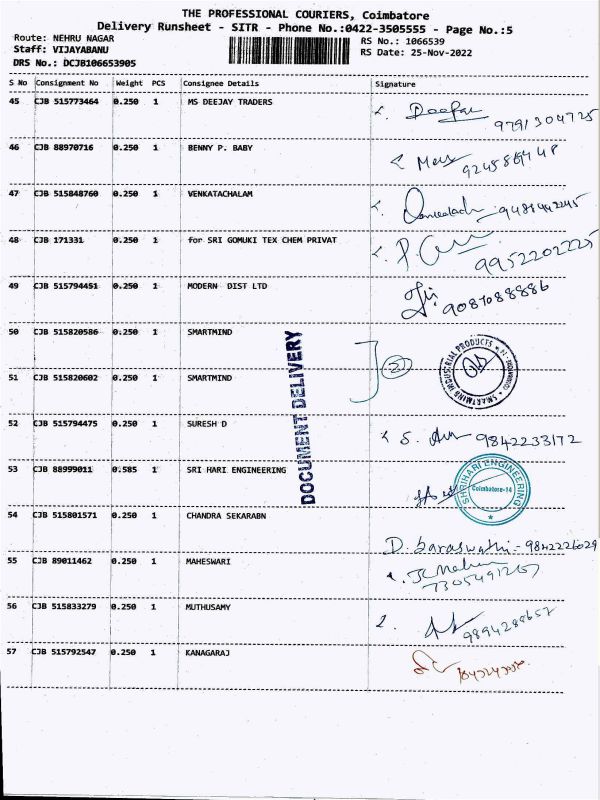 THE PROFESSIONAL COURIERS, Coimbatore
Delivery Runsheet - SITR - Phone No.:0422-3505555 - Page No.:5
Route: NEHRU NAGAR
Staff: VIJAYABANU
DRS No.: DCJB106653905
RS No.: 1066539
RS Date: 25-Nov-2022
S No Consignment No Weight PCS Consignee Details Signature
45 CJB 515773464 0.250 1 MS DEEJAY TRADERS
9791304725
46 CJB 88970716 0.250 1 BENNY P. BABY
47 CJB 515848760 0.250 1 VENKATACHALAM
48 CJB 171331 0.250 1 for SRI GOMUKI TEX CHEM PRIVAT
9952202225
49 CJB 515794451 0.250 1 MODERN DIST LTD
9087088886
50 CJB 515820586 0.250 1 SMARTMIND
51 CJB 515820602 0.250 1 SMARTMIND
2
SMARTMIND INDUSTRIAL PRODUCTS
DOCUMENT DELIVERY
52 CJB 515794475 0.250 1 SURESH D
9842233172
53 CJB 88999011 0.585 1 SRI HARI ENGINEERING
SHRIHARI ENGINEERING
Coimbatore-14
54 CJB 515801571 0.250 1 CHANDRA SEKARABN
D. Saraswathi - 9842226029
55 CJB 89011462 0.250 1 MAHESWARI
56 CJB 515833279 0.250 1 MUTHUSAMY
9894288657
57 CJB 515792547 0.250 1 KANAGARAJ